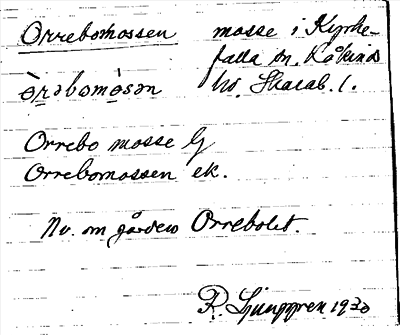 Orrebomossen mosse i Kyrke-
falla sn. Kåkinds
òr̥əbomò̥sən hd. Skarab. l.
Orrebo mosse G
Orrebomossen ek.
Nv. om gården Orrebolet.
R. Ljunggren 1930